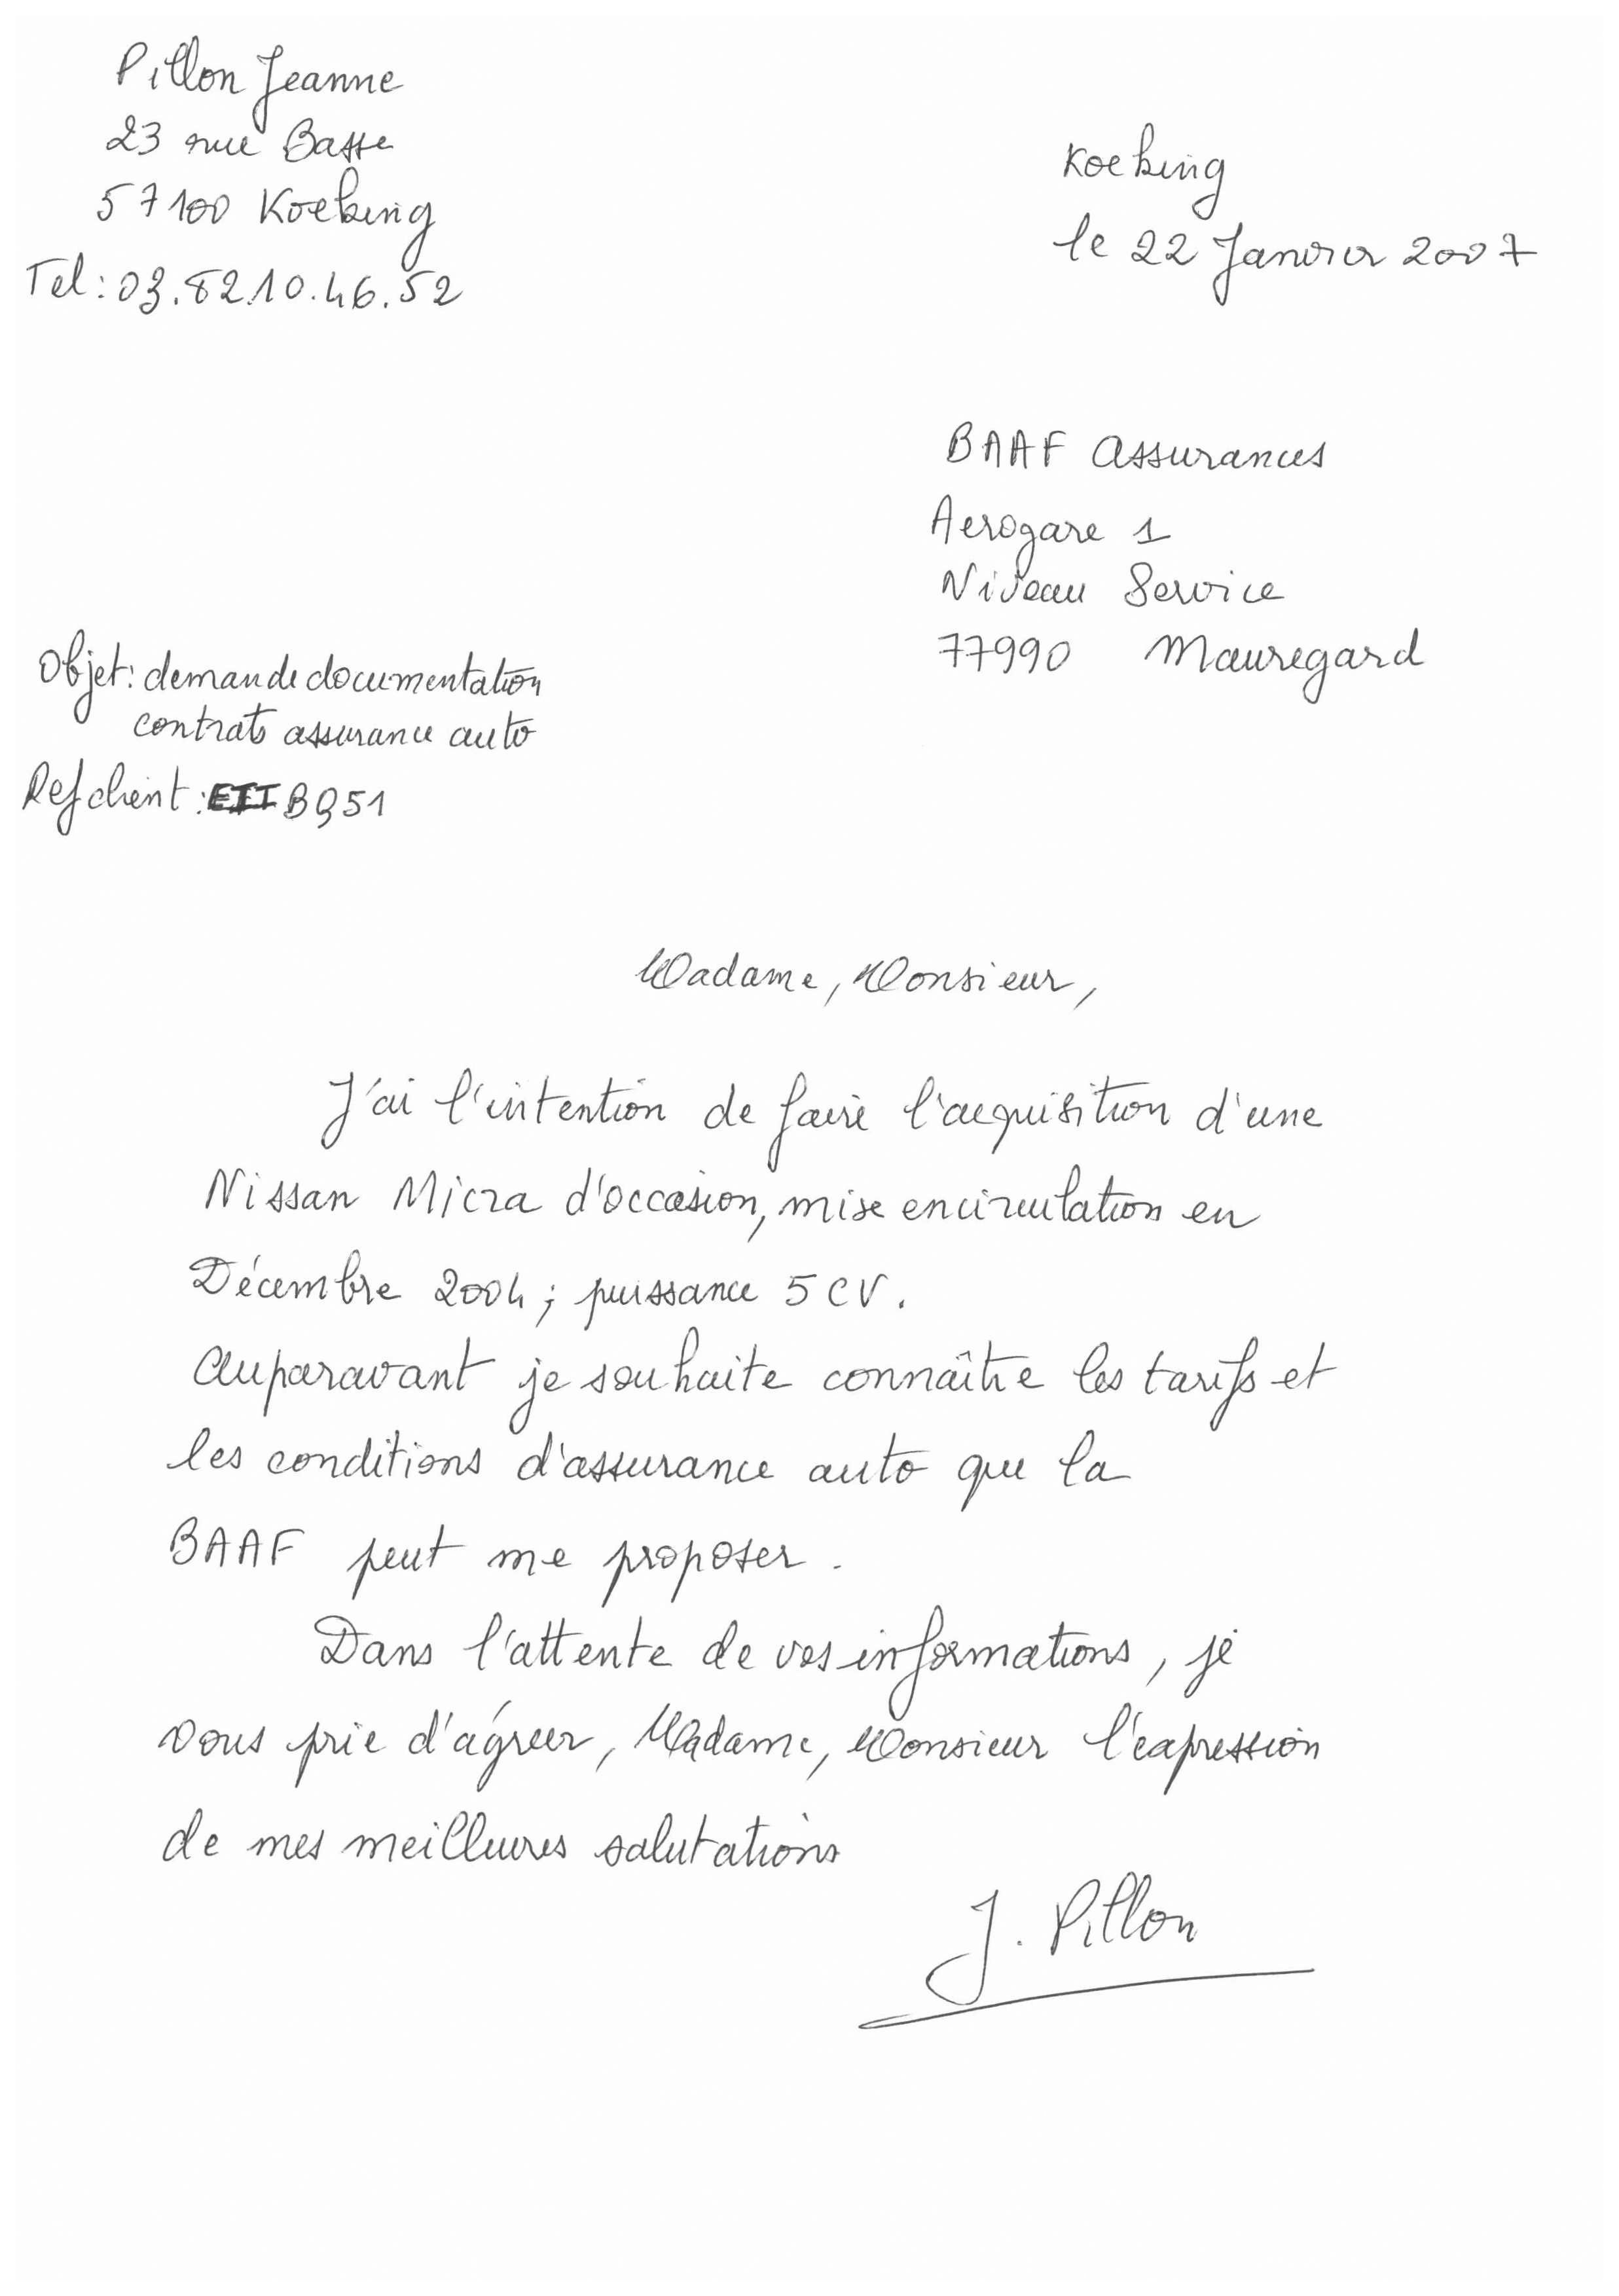 Pillon Jeanne
23 rue Basse
57100 Koeking
Tel: 03.82.10.46.52
Koeking
le 22 Janvier 2007
BAAF Assurances
Aerogare 1
Niveau Service
77990 Mauregard
Objet: demande documentation
contrats assurance auto
Ref client: EIIBQ51
Madame, Monsieur,
J'ai l'intention de faire l'acquisition d'une
Nissan Micra d'occasion, mise en circulation en
Décembre 2004; puissance 5 CV.
Auparavant je souhaite connaître les tarifs et
les conditions d'assurance auto que la
BAAF peut me proposer.
Dans l'attente de vos informations, je
vous prie d'agréer, Madame, Monsieur l'expression
de mes meilleures salutations
J. Pillon